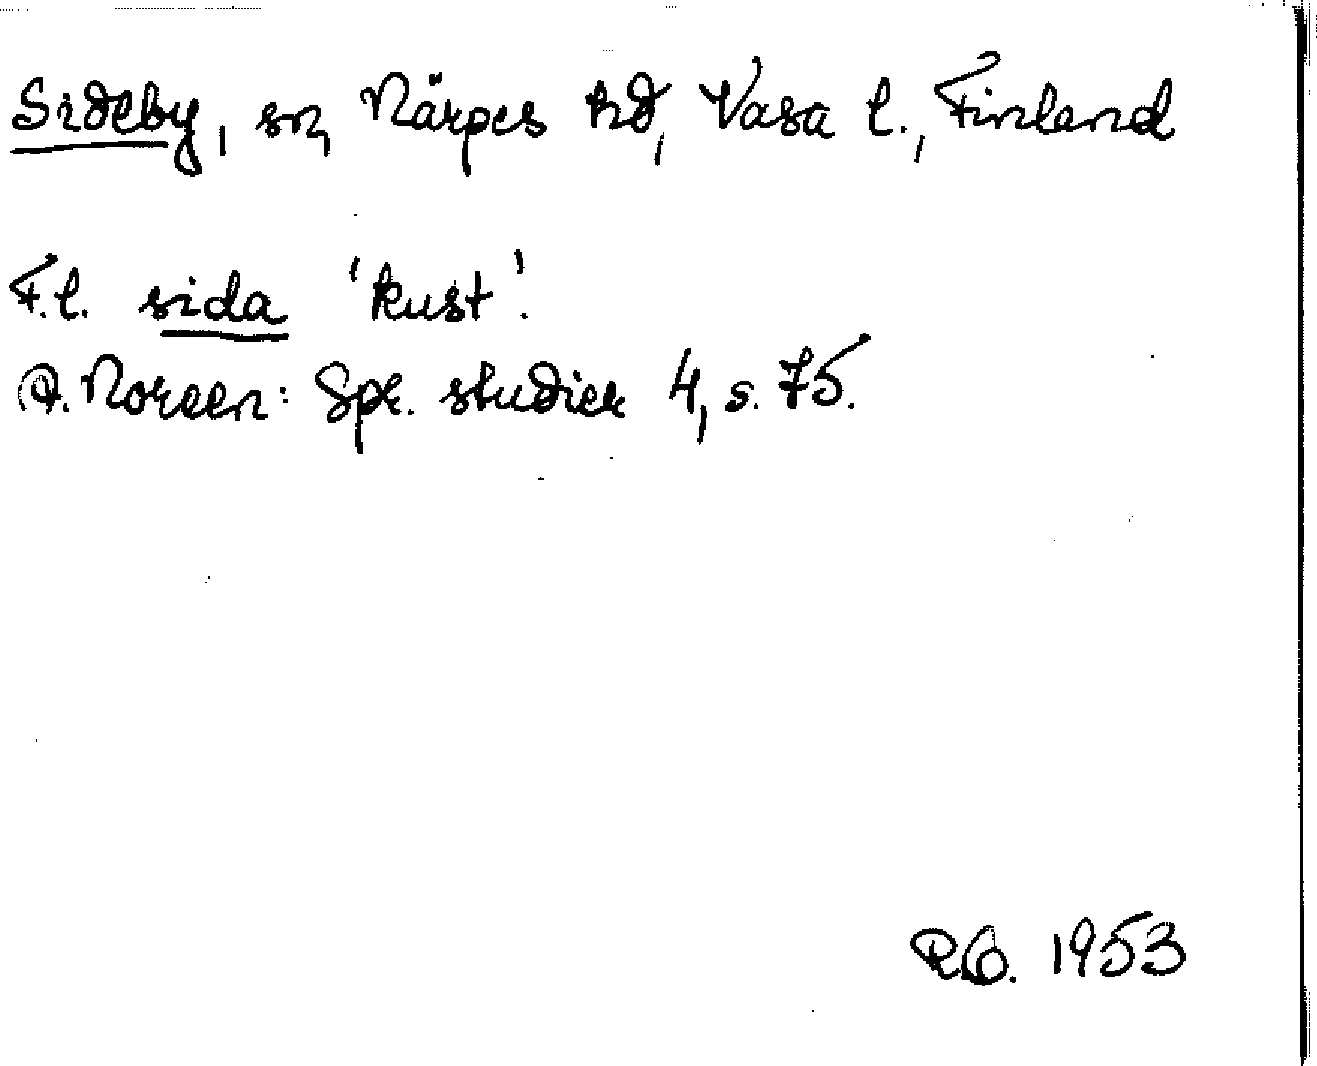 Sideby, sn, Närpes hd, Vasa l., Finland
F.l. sida 'kust'.
A. Noreen: Spr. studier 4, s. 75.
1953